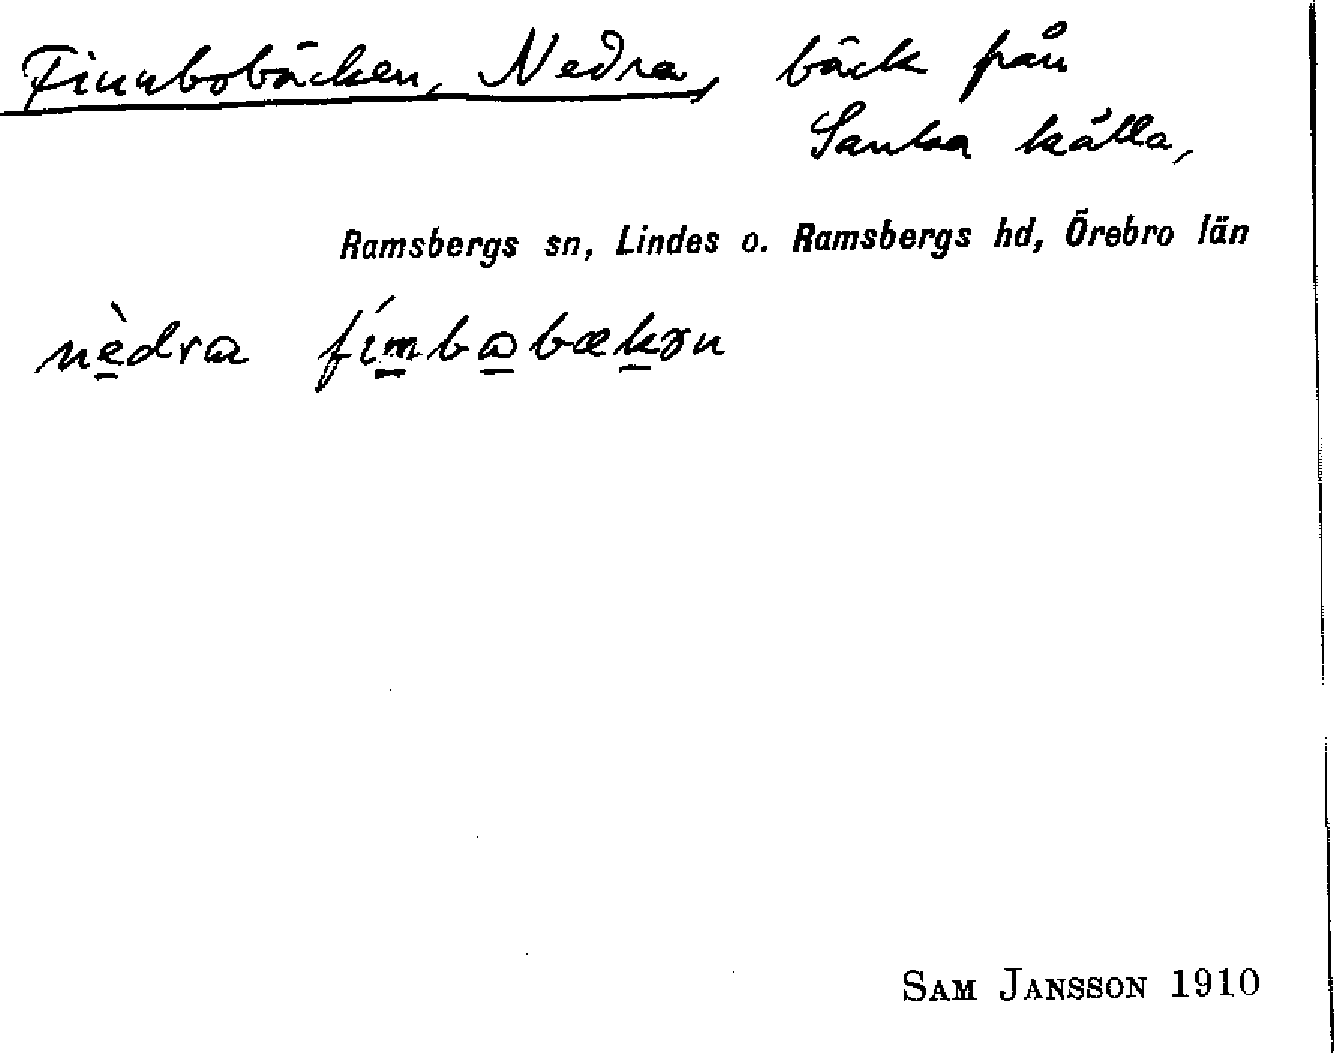 Finnbobäcken, Nedra, bäck från
Sanka källa,
Ramsbergs sn, Lindes o. Ramsbergs hd, Örebro län
nèdra fímbɷbækɤn
SAM JANSSON 1910